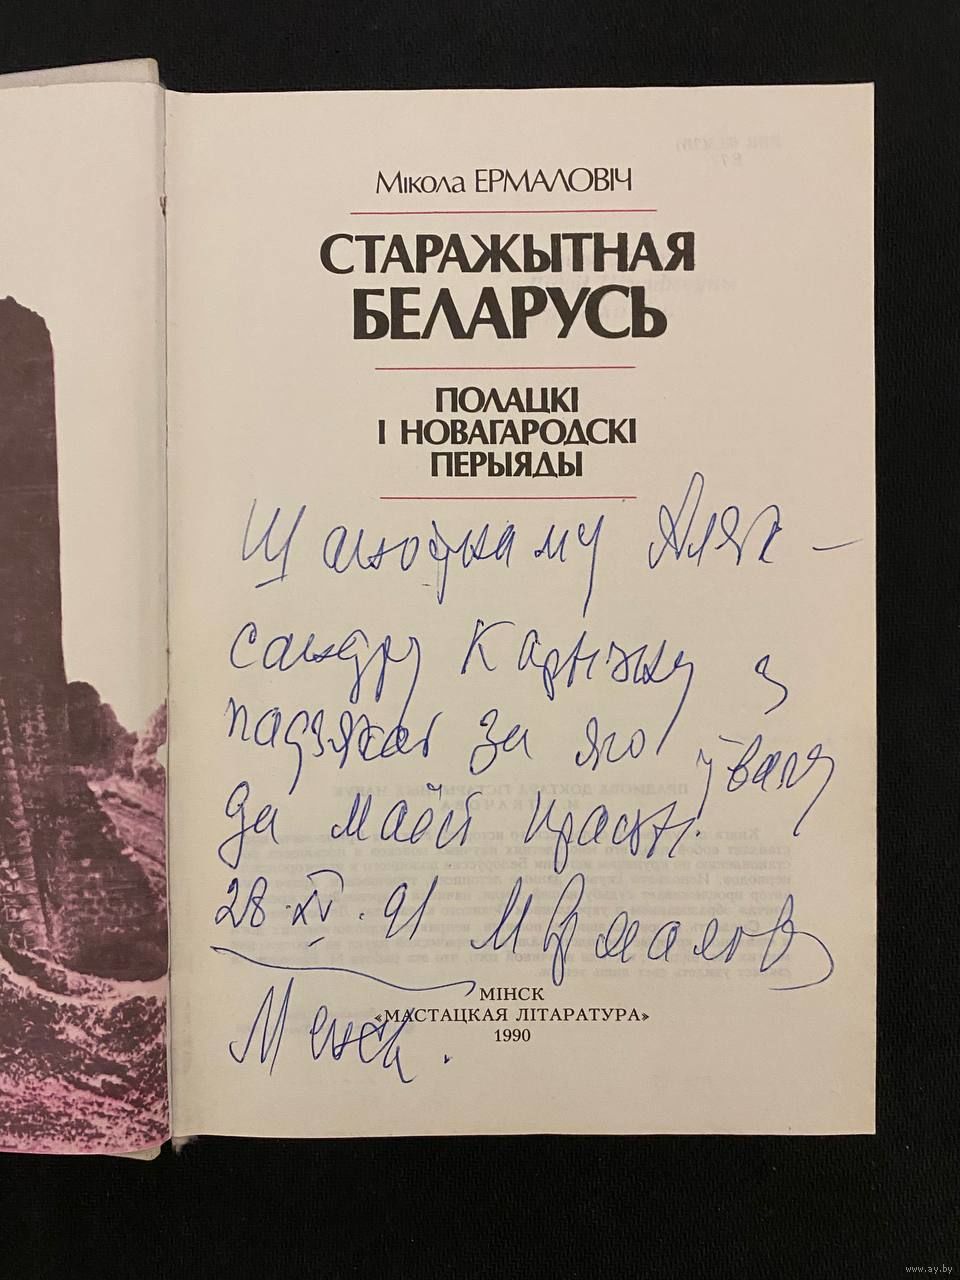 Мікола ЕРМАЛОВІЧ
СТАРАЖЫТНАЯ
БЕЛАРУСЬ
ПОЛАЦКІ
І НОВАГАРОДСКІ
ПЕРЫЯДЫ
Шаноўнаму Аляк-
сандру з
падзякай за яго ўвагу
да маёй працы.
28. 91 М Ермалов
Менск.
МІНСК
«МАСТАЦКАЯ ЛІТАРАТУРА»
1990
www.ay.by